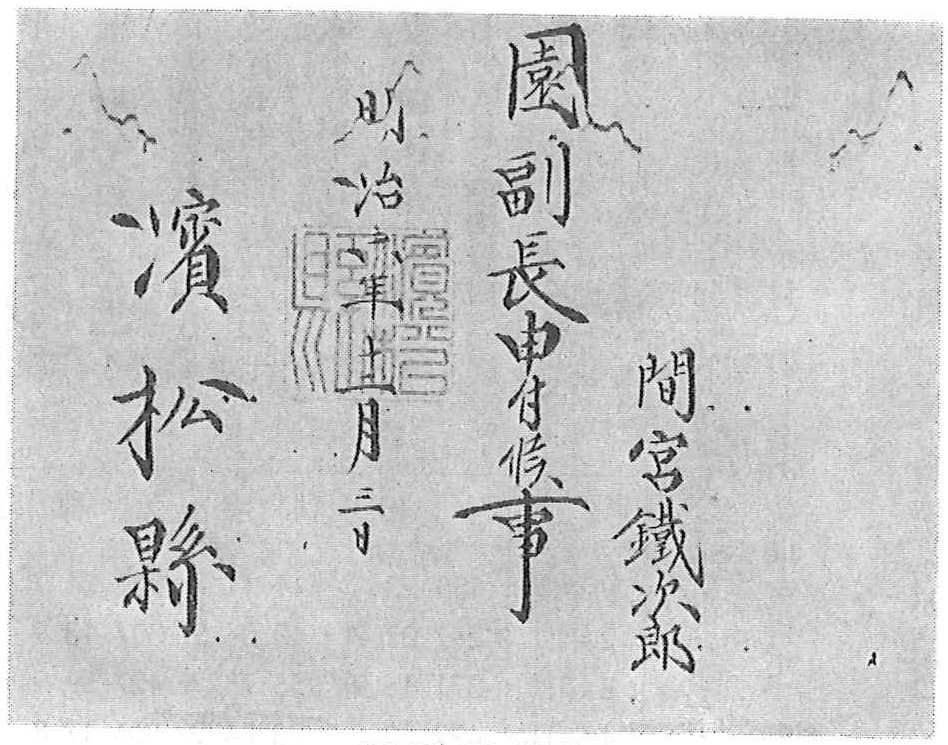 間宮鐵次郎
園副長申付候事
明治六年十一月三日
濱松縣